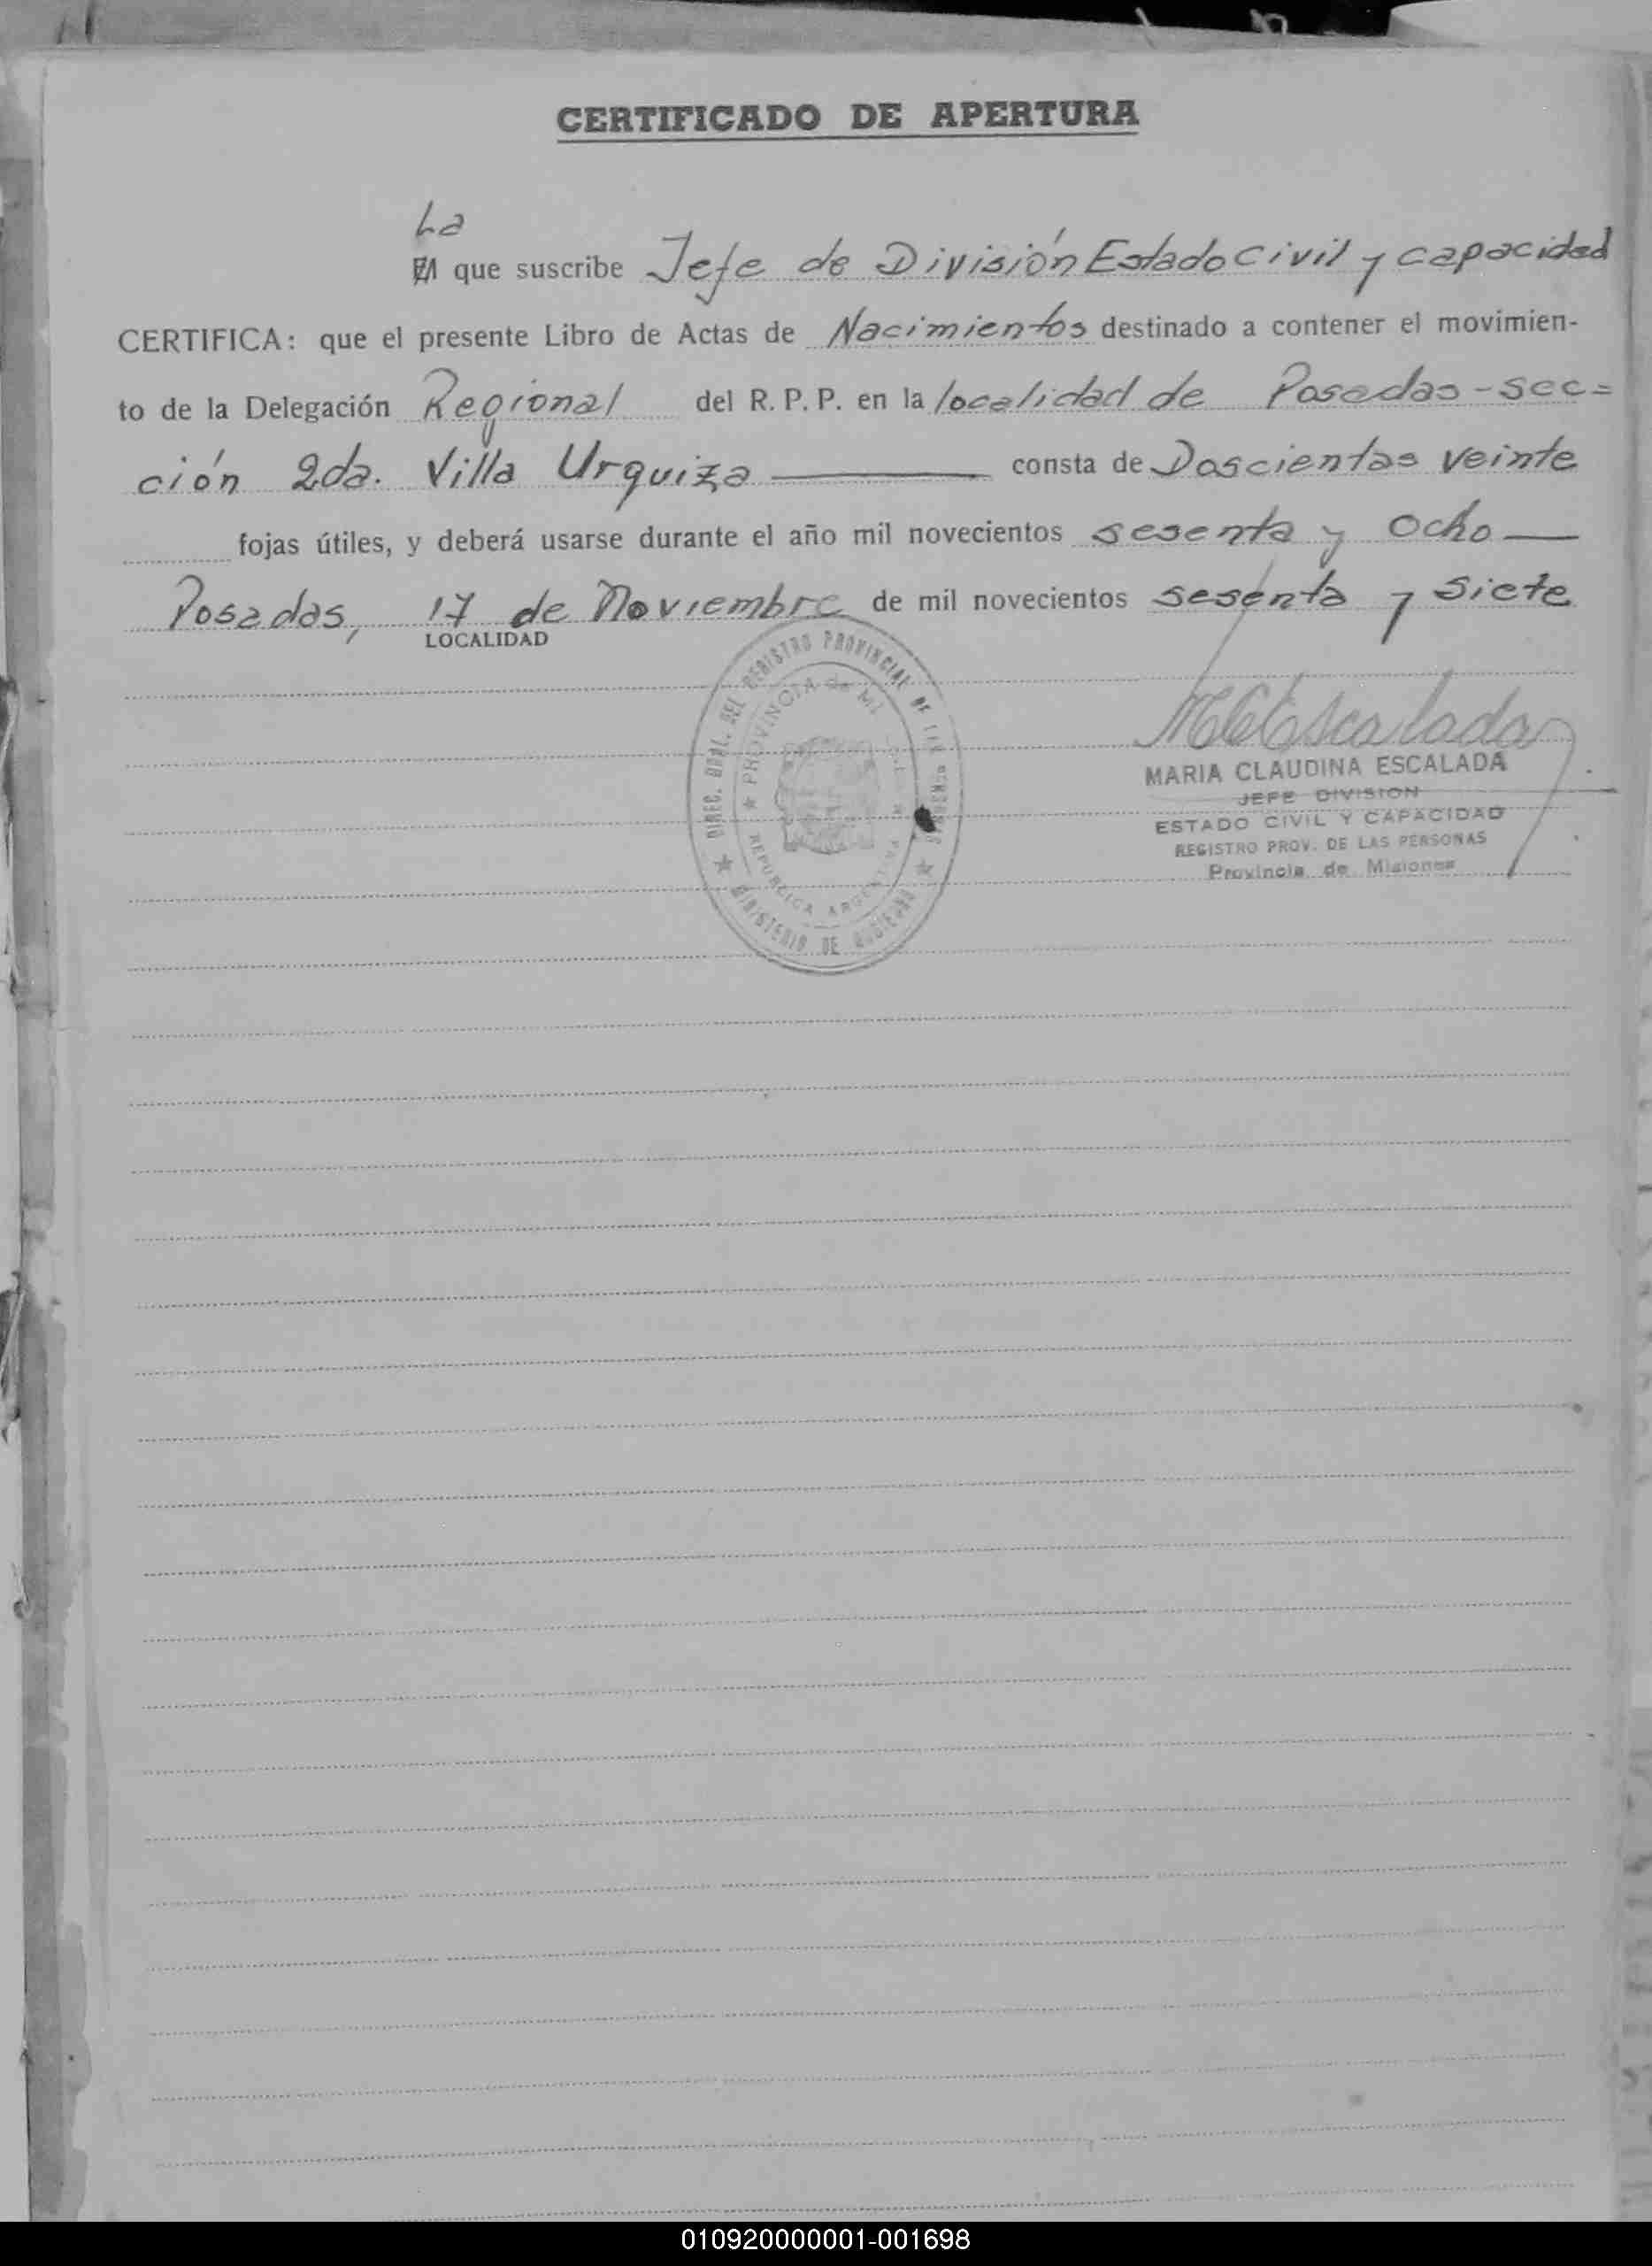 CERTIFICADO DE APERTURA
La
El que suscribe Jefe de División Estado civil y capacidad
CERTIFICA: que el presente Libro de Actas de Nacimientos destinado a contener el movimien-
to de la Delegación Regional del R. P. P. en la localidad de Posadas - sec=
ción 2da. Villa Urquiza consta de Doscientas veinte
fojas útiles, y deberá usarse durante el año mil novecientos sesenta y ocho
Posadas, 17 de Noviembre de mil novecientos sesenta y siete
LOCALIDAD
DIREC. GRAL. DEL REGISTRO PROVINCIAL DE LAS PERSONAS
PROVINCIA de MISIONES
REPUBLICA ARGENTINA
MINISTERIO DE GOBIERNO
MCEscalada
MARIA CLAUDINA ESCALADA
JEFE DIVISION
ESTADO CIVIL Y CAPACIDAD
REGISTRO PROV. DE LAS PERSONAS
Provincia de Misiones
010920000001-001698